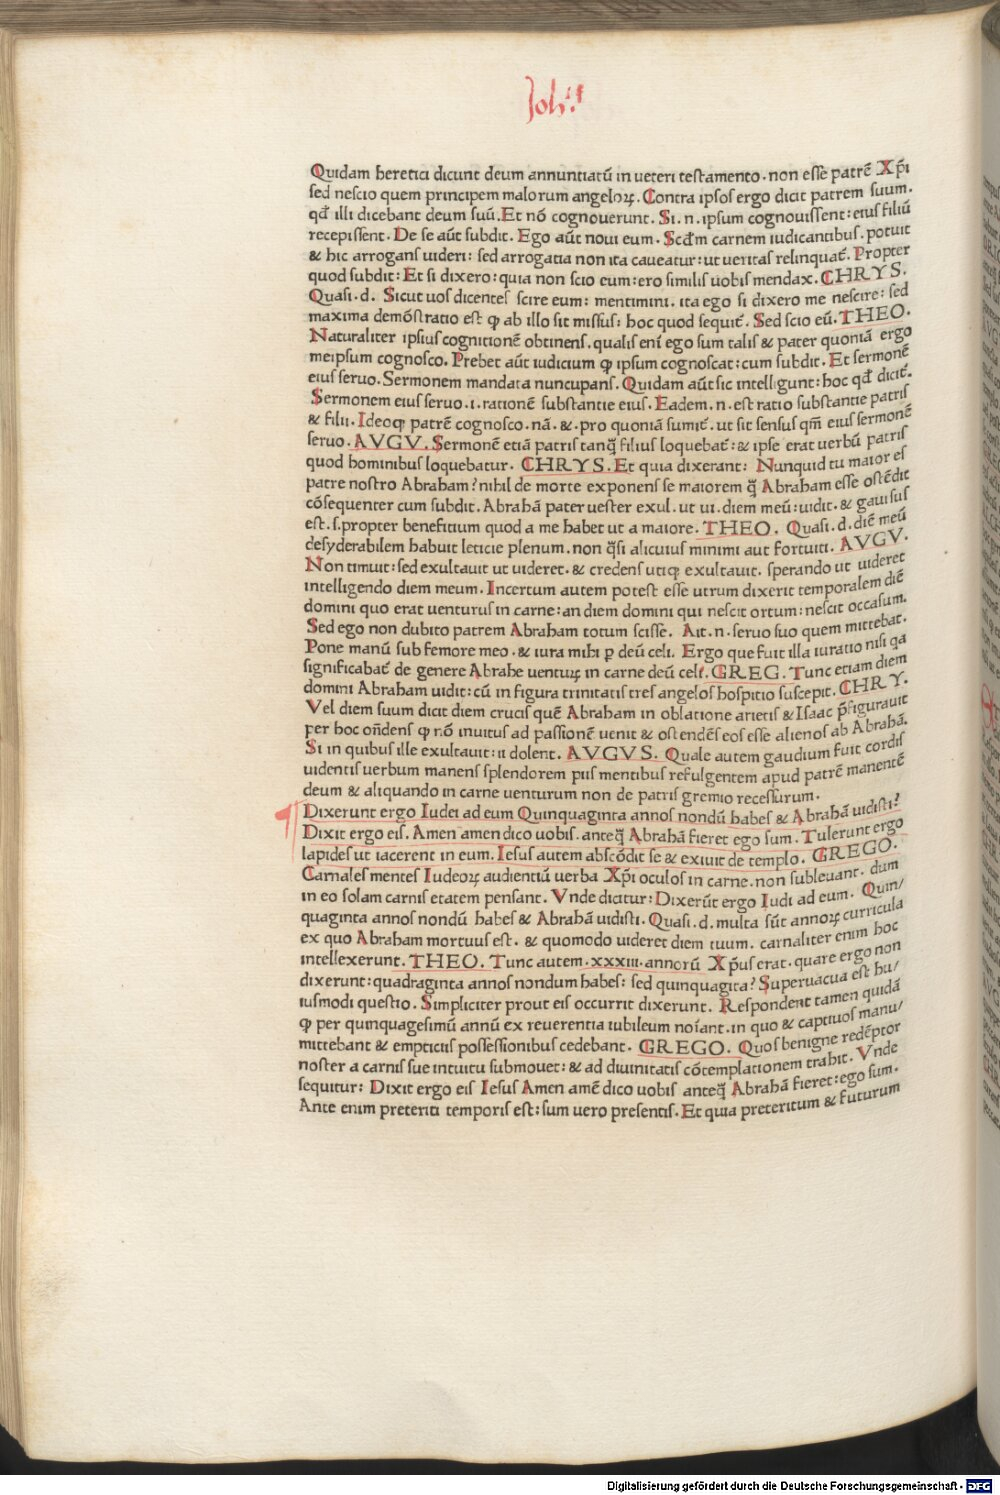 Joh̄.
Quidam heretici dicunt deum annuntiatū in ueteri testamento. non esse patrē Xp̄i
sed nescio quem principem malorum angeloꝝ. Contra ipsos ergo dicit patrem suum.
qđ illi dicebant deum suū. Et nō cognouerunt. Si .n. ipsum cognouissent: eius filiū
recepissent. De se aūt subdit. Ego aūt noui eum. Scđm carnem iudicantibus. potuit
& hic arrogans uideri: sed arrogātia non ita caueatur: ut ueritas relinquat̄. Propter
quod subdit: Et si dixero: quia non scio eum: ero similis uobis mendax. CHRYS.
Quasi .d. Sicut uos dicentes scire eum: mentimini. ita ego si dixero me nescire: sed
maxima demōstratio est ꝙ ab illo sit missus: hoc quod sequit̄. Sed scio eū. THEO.
Naturaliter ipsius cognitionē obtinens. qualis eni ego sum talis & pater quoniā ergo
meipsum cognosco. Prebet aūt iudicium ꝙ ipsum cognoscat: cum subdit. Et sermonē
eius seruo. Sermonem mandata nuncupans. Quidam aūt sic intelligunt: hoc qđ dicit̄.
Sermonem eius seruo .i. rationē substantie eius. Eadem .n. est ratio substantie patris
& filii. Ideoqꝫ patrē cognosco. nā. & pro quoniā sumit̄. ut sit sensus qm̄ eius sermonē
seruo. AVGV. Sermonē etiā patris tanq̄ filius loquebat̄: & ipse erat uerbū patris
quod hominibus loquebatur. CHRYS. Et quia dixerant: Nunquid tu maior es
patre nostro Abraham? nihil de morte exponens se maiorem q̄ Abraham esse ostēdit
cōsequenter cum subdit. Abrahā pater uester exul. ut ui. diem meū: uidit. & gauisus
est. s. propter benefitium quod a me habet ut a maiore. THEO. Quasi .d. diē meū
desyderabilem habuit leticie plenum. non q̄si alicuius minimi aut fortuiti. AVGV.
Non timuit: sed exultauit ut uideret. & credens utiqꝫ exultauit. sperando ut uideret
intelligendo diem meum. Incertum autem potest esse utrum dixerit temporalem diē
domini quo erat uenturus in carne: an diem domini qui nescit ortum: nescit occasum.
Sed ego non dubito patrem Abraham totum scisse. Ait .n. seruo suo quem mittebat.
Pone manū sub femore meo. & iura mihi ꝑ deū celi. Ergo que fuit illa iuratio nisi qa
significabat̄ de genere Abrahe uentuꝝ in carne deū celi. GREG. Tunc etiam diem
domini Abraham uidit: cū in figura trinitatis tres angelos hospitio suscepit. CHRY.
Vel diem suum dicit diem crucis quē Abraham in oblatione arietis & Isaac p̄figurauit
per hoc oñdens ꝙ nō inuitus ad passionē uenit & ostendēs eos esse alienos ab Abrahā.
Si in quibus ille exultauit: ii dolent. AVGVS. Quale autem gaudium fuit cordis
uidentis uerbum manens splendorem piis mentibus refulgentem apud patrē manentē
deum & aliquando in carne uenturum non de patris gremio recessurum.
¶ Dixerunt ergo Iudei ad eum Quinquaginta annos nondū habes & Abrahā uidisti?
Dixit ergo eis. Amen amen dico uobis. anteq̄ Abrahā fieret ego sum. Tulerunt ergo
lapides ut iacerent in eum. Iesus autem abscōdit se & exiuit de templo. GREGO.
Carnales mentes Iudeoꝝ audientiū uerba Xp̄i oculos in carne. non subleuant. dum
in eo solam carnis etatem pensant. Vnde dicitur: Dixerūt ergo Iudi ad eum. Quin/
quaginta annos nondū habes & Abrahā uidisti. Quasi .d. multa sūt annoꝝ curricula
ex quo Abraham mortuus est. & quomodo uideret diem tuum. carnaliter enim hoc
intellexerunt. THEO. Tunc autem .xxxiii. annorū Xp̄us erat. quare ergo non
dixerunt: quadraginta annos nondum habes: sed quinquagīta? Superuacua est hu/
iusmodi questio. Simpliciter prout eis occurrit dixerunt. Respondent tamen quidā
ꝙ per quinquagesimū annū ex reuerentia iubileum noīant. in quo & captiuos manu/
mittebant & empticiis possessionibus cedebant. GREGO. Quos benigne redēptor
noster a carnis sue intuitu submouet: & ad diuinitatis cōtemplationem trahit. Vnde
sequitur: Dixit ergo eis Iesus Amen amē dico uobis anteq̄ Abrahā fieret: ego sum.
Ante enim preteriti temporis est: sum uero presentis. Et quia preteritum & futurum
Digitalisierung gefördert durch die Deutsche Forschungsgemeinschaft - DFG